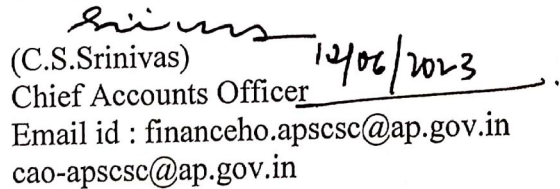 (C.S.Srinivas)
12/06/2023
Chief Accounts Officer
Email id : financeho.apscsc@ap.gov.in
cao-apscsc@ap.gov.in